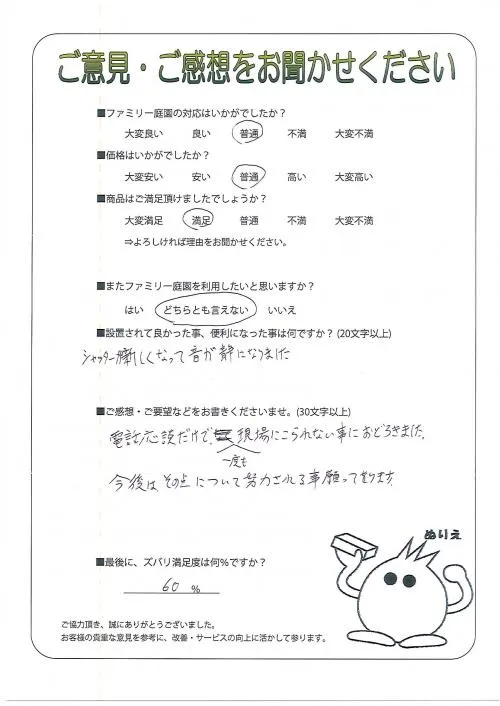 ご意見・ご感想をお聞かせください
■ファミリー庭園の対応はいかがでしたか？
大変良い 良い 普通 不満 大変不満
■価格はいかがでしたか？
大変安い 安い 普通 高い 大変高い
■商品はご満足頂けましたでしょうか？
大変満足 満足 普通 不満 大変不満
⇒よろしければ理由をお聞かせください。
■またファミリー庭園を利用したいと思いますか？
はい どちらとも言えない いいえ
■設置されて良かった事、便利になった事は何ですか？(20文字以上)
シャッター新しくなって音が静になりました
■ご感想・ご要望などをお書きくださいませ。(30文字以上)
電話応談だけで、現場にこられない事におどろきました。
一度も
今後はその点について努力される事願っております
ぬりえ
■最後に、ズバリ満足度は何％ですか？
60 ％
ご協力頂き、誠にありがとうございました。
お客様の貴重な意見を参考に、改善・サービスの向上に活かして参ります。